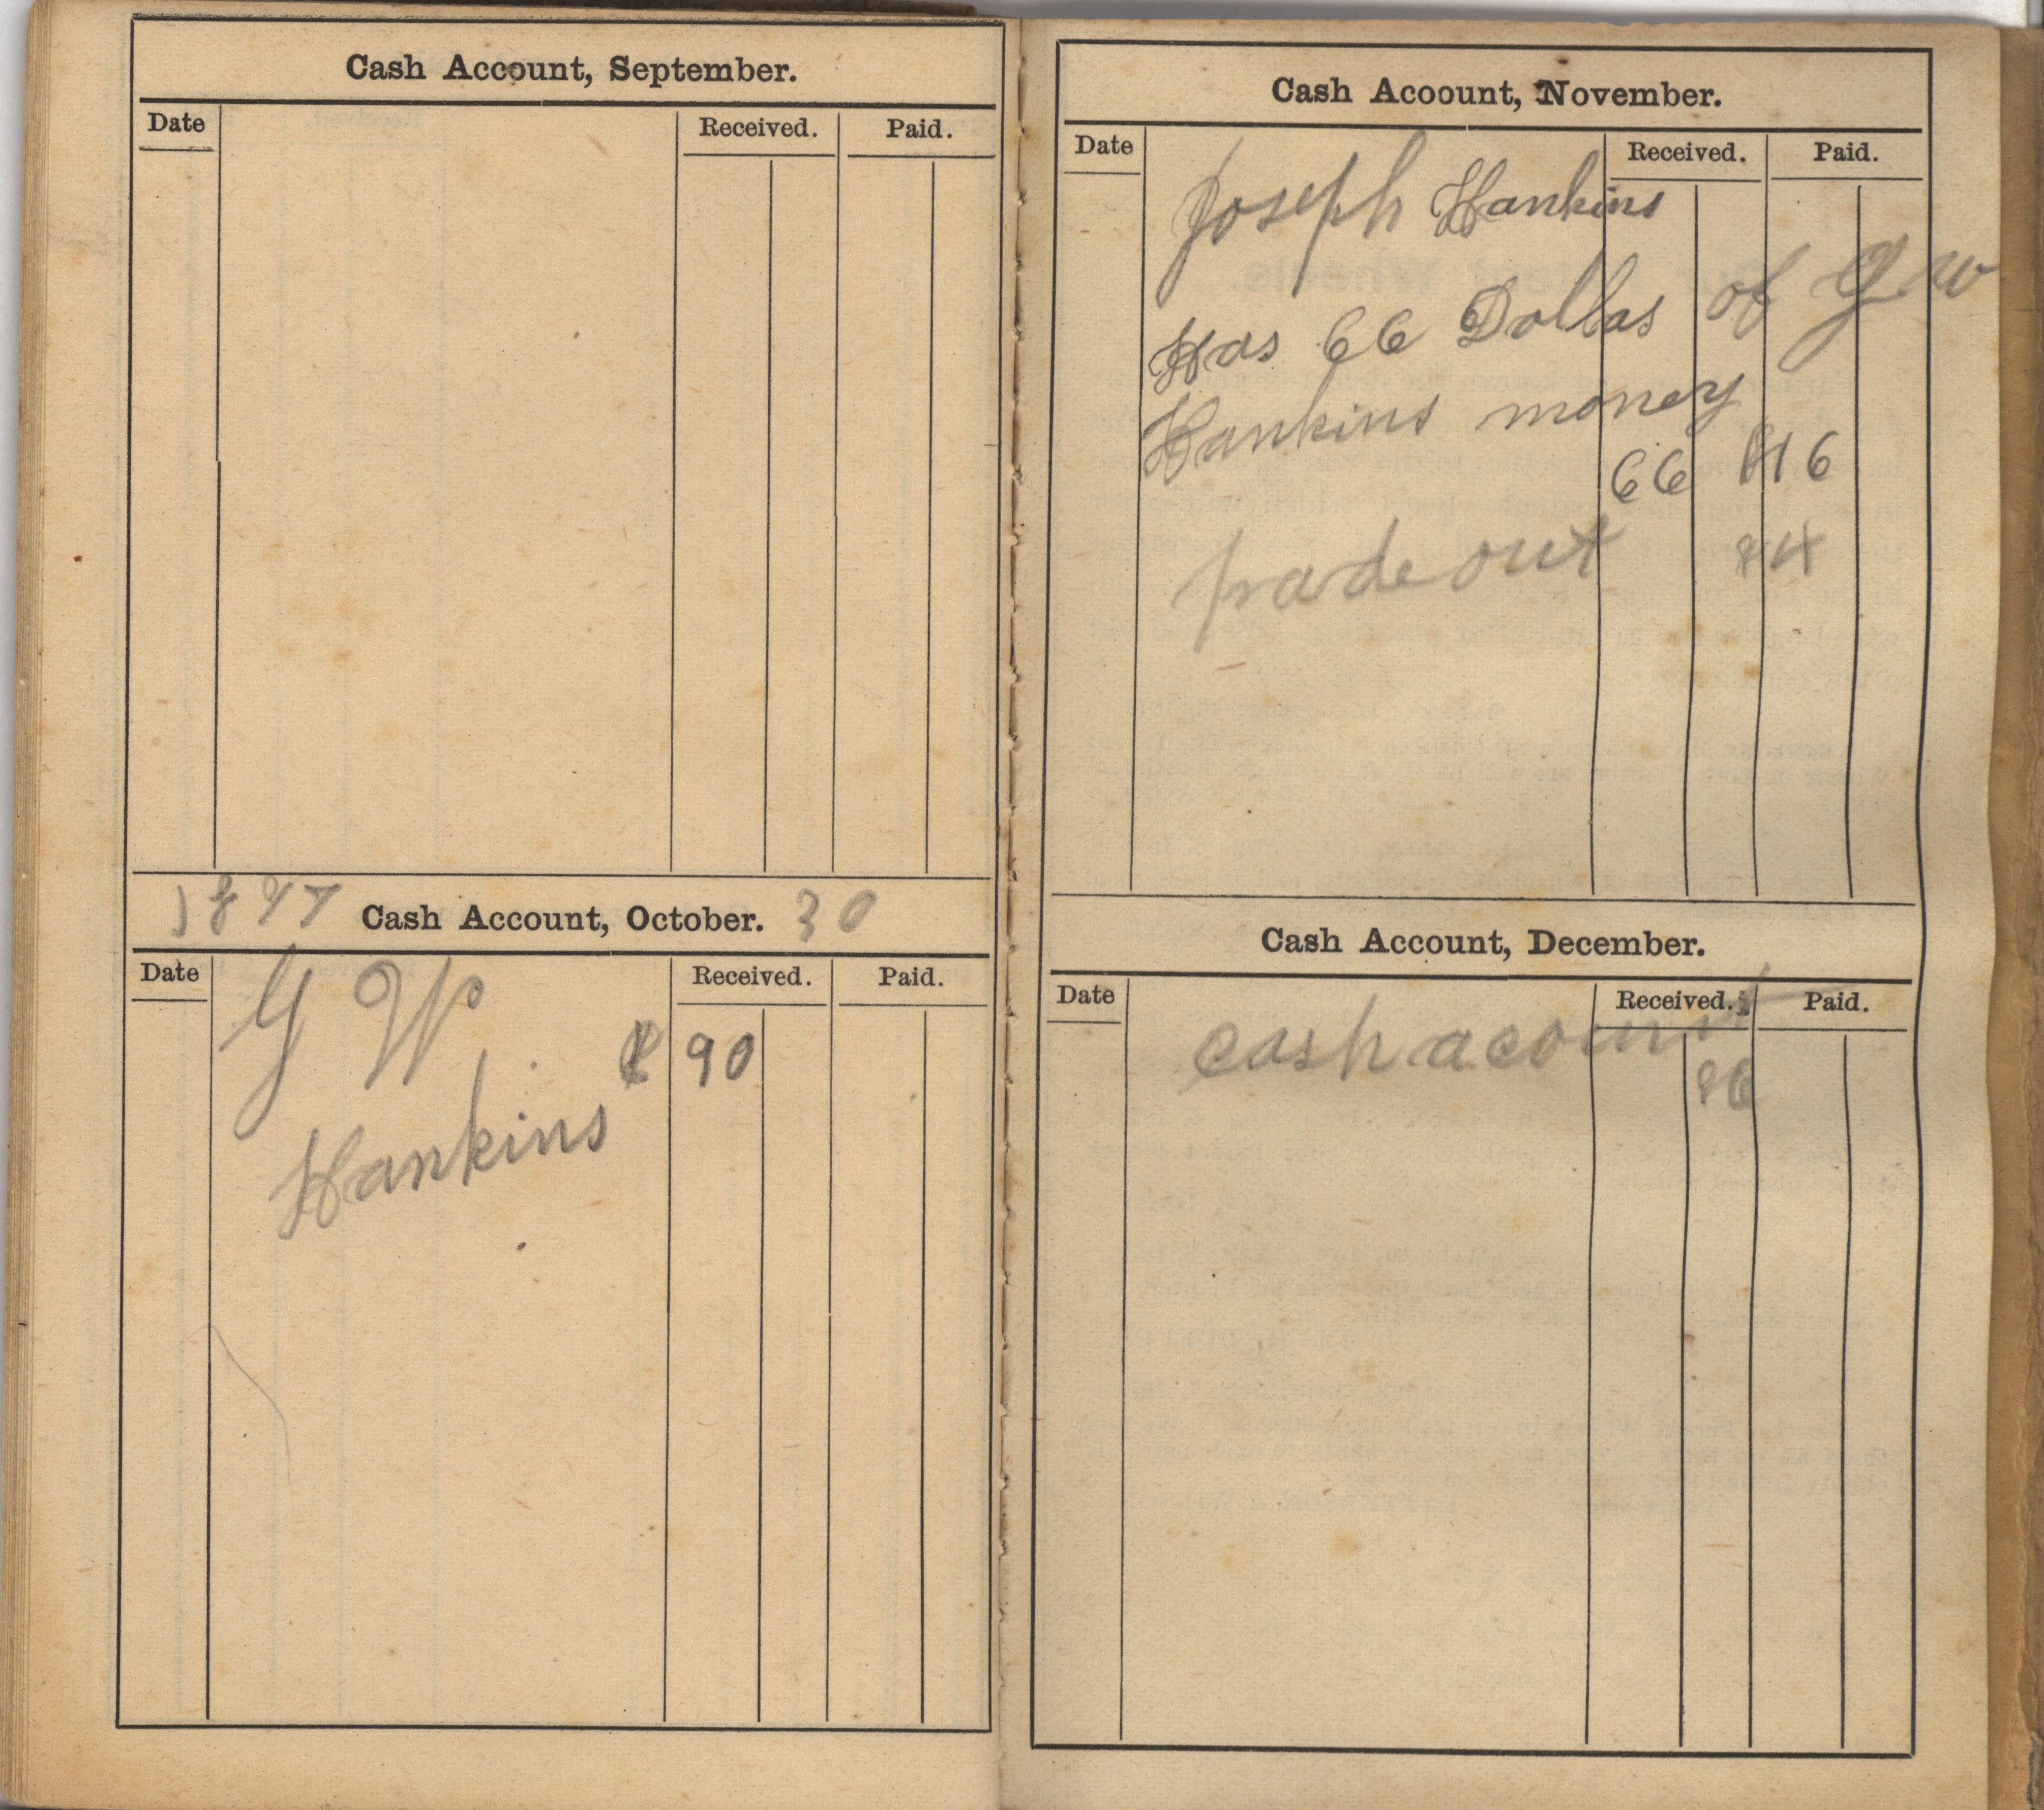 Cash Account, September.
Date Received. Paid.
1897 Cash Account, October. 30
Date Received. Paid.
G W
90
Hankins
Cash Acoount, November.
Date Received. Paid.
Joseph Hankins
Has 66 Dollas of G W
Hankins money
66 16
trade out 84
Cash Account, December.
Date Received. Paid.
cash acount
86